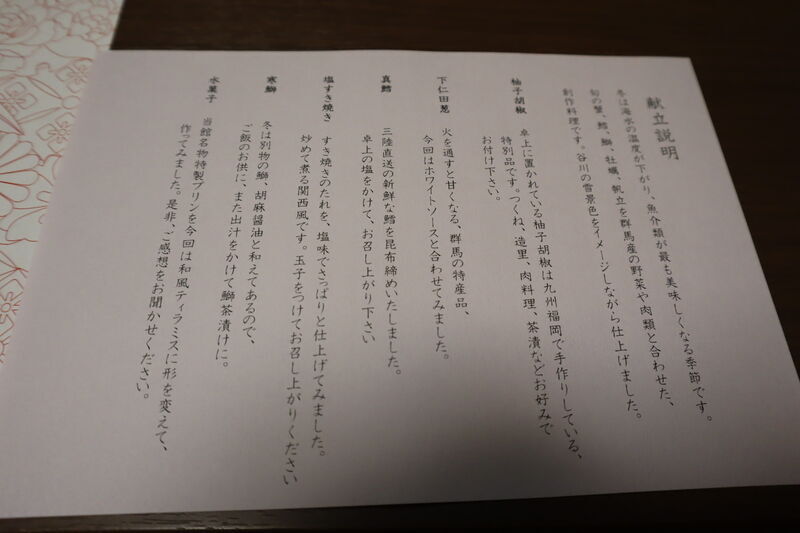 献立説明
冬は海水の温度が下がり、魚介類が最も美味しくなる季節です。
旬の蟹、鱈、鰤、牡蠣、帆立を群馬産の野菜や肉類と合わせた、
創作料理です。谷川の雪景色をイメージしながら仕上げました。
柚子胡椒 卓上に置かれている柚子胡椒は九州福岡で手作りしている、
特別品です。つくね、造里、肉料理、茶漬などお好みで
お付け下さい。
下仁田葱 火を通すと甘くなる、群馬の特産品、
今回はホワイトソースと合わせてみました。
真鱈 三陸直送の新鮮な鱈を昆布締めいたしました。
卓上の塩をかけて、お召し上がり下さい
塩すき焼き すき焼きのたれを、塩味でさっぱりと仕上げてみました。
炒めて煮る関西風です。玉子をつけてお召し上がりください
寒鰤 冬は別物の鰤、胡麻醤油と和えてあるので、
ご飯のお供に、また出汁をかけて鰤茶漬けに。
水菓子 当館名物特製プリンを今回は和風ティラミスに形を変えて、
作ってみました。是非、ご感想をお聞かせください。